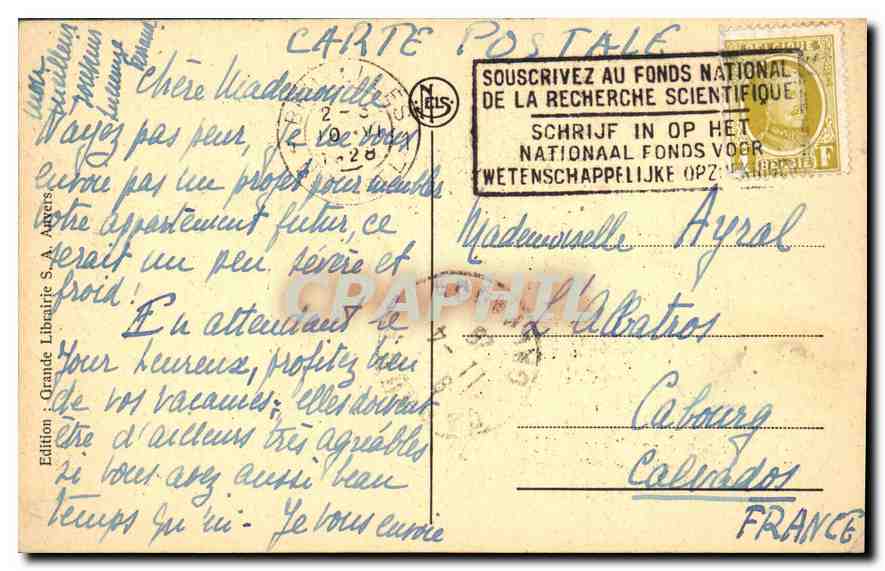 CARTE POSTALE
Chère Mademoiselle
N'ayez pas peur, je ne vous
envoie pas un projet pour meubler
votre appartement futur, ce
serait un peu sévère et
froid!
En attendant le
jour heureux, profitez bien
de vos vacances; elles doivent
être d'ailleurs très agréables
si vous avez aussi beau
temps qu'ici - Je vous envoie
mon meilleur
souvenir
Edition : Grande Librairie S. A. Anvers
NELS
2-3
10 VII
1928
SOUSCRIVEZ AU FONDS NATIONAL
DE LA RECHERCHE SCIENTIFIQUE
SCHRIJF IN OP HET
NATIONAAL FONDS VOOR
WETENSCHAPPELIJKE OPZ
F
Mademoiselle Ayral
L'Albatros
Cabourg
Calvados
FRANCE
CPAPHIL